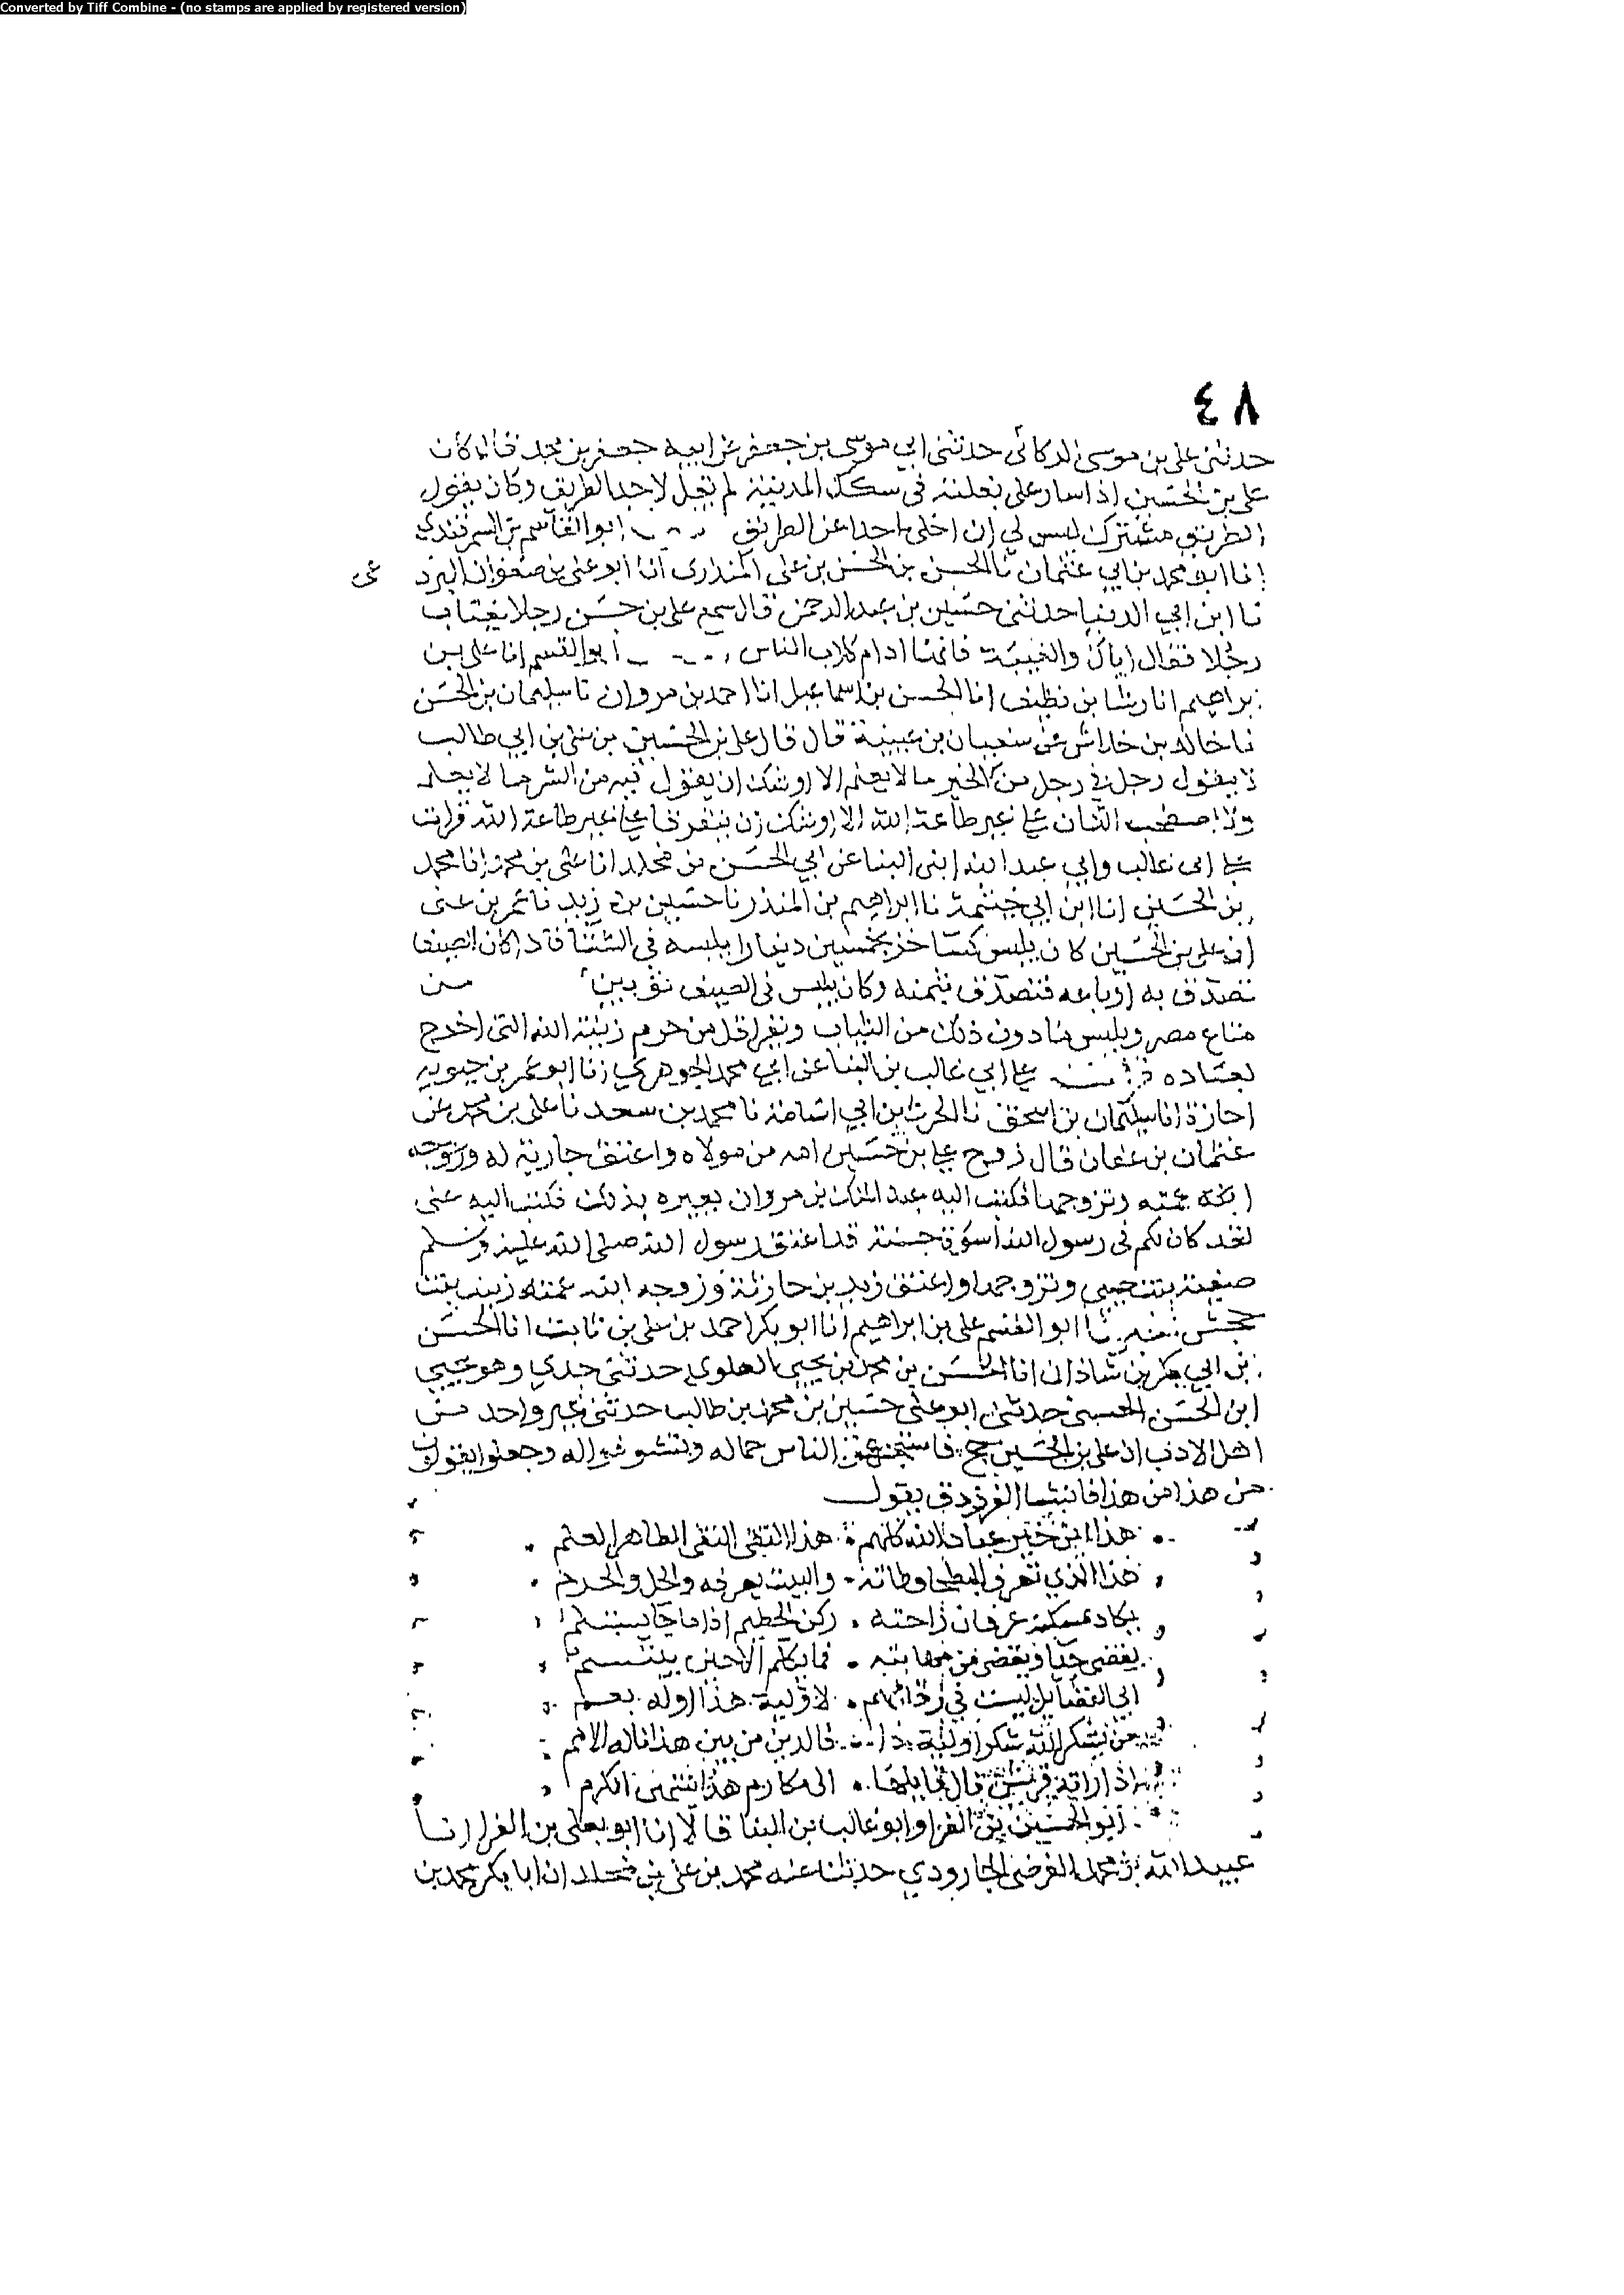 Converted by Tiff Combine - (no stamps are applied by registered version)
٤٨
حدثني علي بن موسى الدكائي حدثني ابي موسى بن جعفر عن ابيه جعفر بن محمد قال كان
علي بن الحسين اذا سار على بغلته في سكك المدينة لم يقل لاحد الطريق وكان يقول
الطريق مشترك ليس لي ان انحي احدا عن الطريق ابو القاسم بن السمرقندي
انا ابو محمد بن ابي عثمان نا الحسن بن الحسن بن علي المنذري انا ابو علي بن صفوان البرذعي
نا ابن ابي الدنيا حدثني حسين بن عبد الرحمن قال سمع علي بن حسن رجلا يغتاب
رجلا فقال اياك والغيبة فانها ادام كلاب الناس ابو القسم انا علي بن
ابراهيم انا رشا بن نظيف انا الحسن بن اسماعيل انا احمد بن مروان نا سليمان بن الحسن
نا خالد بن خداش عن سفيان بن عيينة قال قال علي بن الحسين بن علي بن ابي طالب
لا يقول رجل في رجل من الخير ما لا يعلم الا اوشك ان يقول فيه من الشر ما لا يعلم
وما اصطحب اثنان على غير طاعة الله الا اوشك ان يتفرقا على غير طاعة الله قرات
على ابي غالب وابي عبد الله ابني البنا عن ابي الحسن بن مخلد انا علي بن محمد انا محمد
بن الحسين انا ابن ابي خيثمة نا ابراهيم بن المنذر نا حسين بن زيد نا عمر بن علي
ان علي بن الحسين كان يلبس كسا خز بخمسين دينارا يلبسه في الشتا فاذا كان الصيف
تصدق به او باعه فتصدق بثمنه وكان يلبس في الصيف ثوبين من
متاع مصر ويلبس ما دون ذلك من الثياب ويقرا قل من حرم زينة الله التي اخرج
لعباده قرات على ابي غالب بن البنا عن ابي محمد الجوهري انا ابو عمر بن حيويه
اجازة انا سليمان بن اسحق نا الحرث بن ابي اسامة نا محمد بن سعد نا علي بن محمد عن
عثمان بن عثمان قال زوج علي بن حسين امه من مولاه واعتق جارية له وزوجه
ابنة عمته وتزوجها فكتب اليه عبد الملك بن مروان يعيره بذلك فكتب اليه علي
لقد كان لكم في رسول الله اسوة حسنة قد اعتق رسول الله صلى الله عليه وسلم
صفية بنت حيي وتزوجها واعتق زيد بن حارثة وزوجه ابنة عمته زينب بنت
جحش نا ابو القسم علي بن ابراهيم انا ابو بكر احمد بن علي بن ثابت انا الحسن
بن ابي بكر بن شاذان انا الحسن بن محمد بن يحيى العلوي حدثني جدي وهو يحيى
ابن الحسن الحسني حدثني ابو علي حسين بن محمد بن طالب حدثني غير واحد من
اهل الادب ان علي بن الحسين حج فاستجهر الناس جماله وتشوفوا له وجعلوا يقولون
من هذا من هذا فانشا الفرزدق يقول
هذا ابن خير عباد الله كلهم هذا التقي النقي الطاهر العلم
هذا الذي تعرف البطحا وطاته والبيت يعرفه والحل والحرم
يكاد يمسكه عرفان راحته ركن الحطيم اذا ما جا يستلم
يغضي حيا ويغضى من مهابته فما يكلم الا حين يبتسم
اي القبايل ليست في رقابهم لاولية هذا اوله نعم
من يشكر الله يشكر اولية ذا فالدين من بيت هذا ناله الامم
اذا راته قريش قال قايلها الى مكارم هذا ينتهي الكرم
ابو الحسين بن الفرا وابو غالب بن البنا قالا انا ابو يعلى بن الفرا انا
عبيد الله بن محمد الفرضي الجارودي حدثنا عنه محمد بن علي بن مخلد ان ابا بكر محمد بن